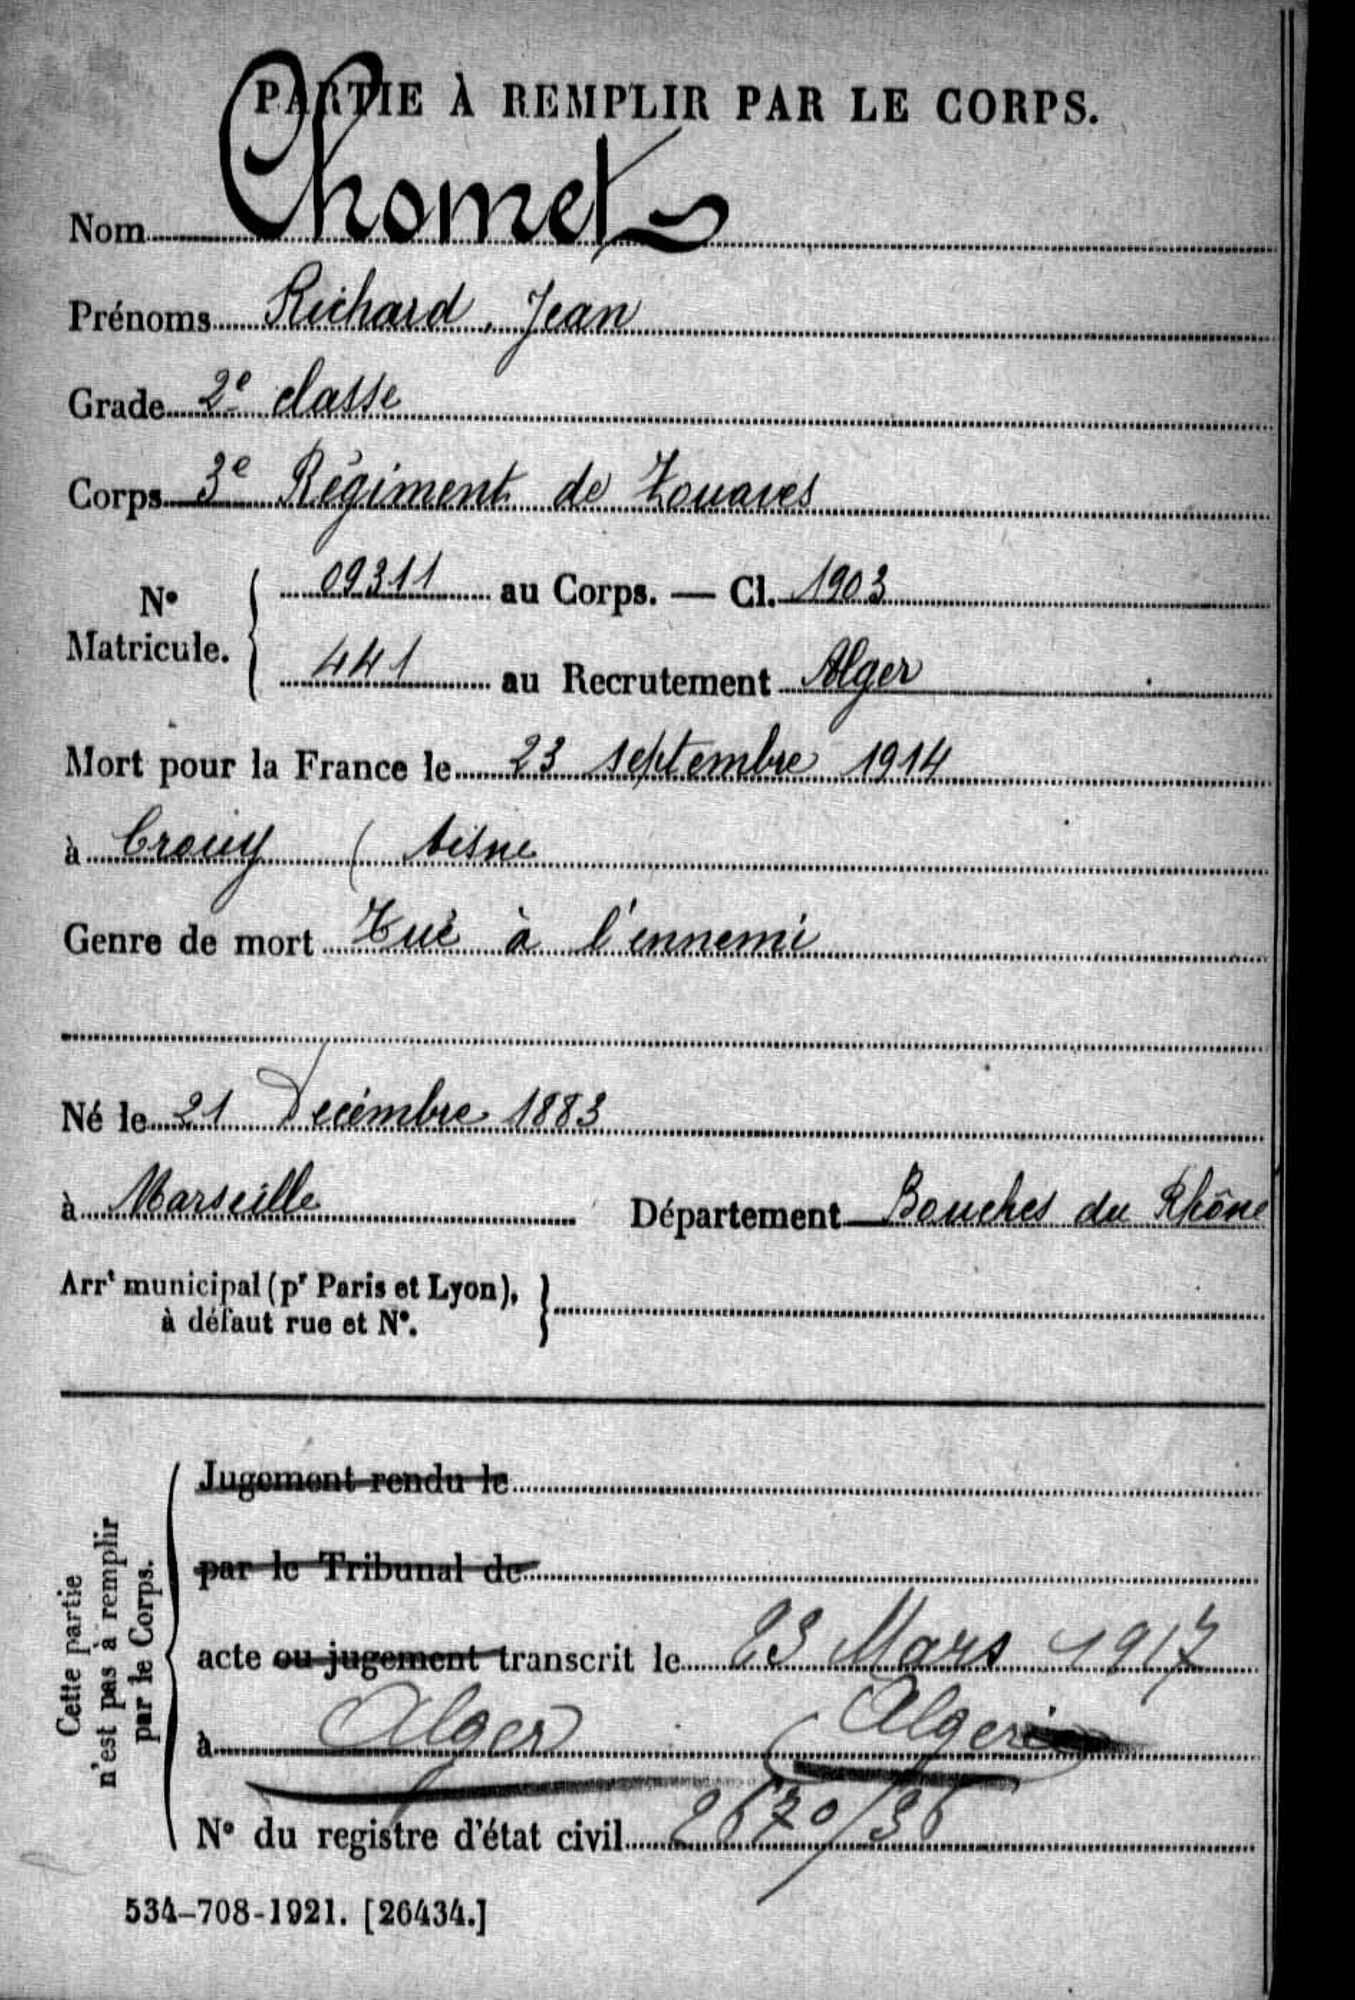 PARTIE À REMPLIR PAR LE CORPS.
Nom Chomet
Prénoms Richard, Jean
Grade 2e classe
Corps 3e Régiment de Zouaves
N° Matricule. { 09311 au Corps. — Cl. 1903
441 au Recrutement Alger
Mort pour la France le 23 septembre 1914
à Crouy ( Aisne
Genre de mort Tué à l'ennemi
Né le 21 Decembre 1883
à Marseille Département Bouches du Rhône
Arrt municipal (pr Paris et Lyon), }
à défaut rue et N°.
Cette partie
n'est pas à remplir
par le Corps.
Jugement rendu le
par le Tribunal de
acte ou jugement transcrit le 23 Mars 1917
à Alger
N° du registre d'état civil
534-708-1921. [26434.]